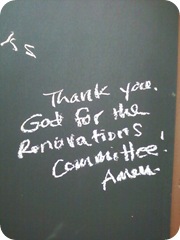 Thank you.
God for the
Renovations
Committee!
Amen.